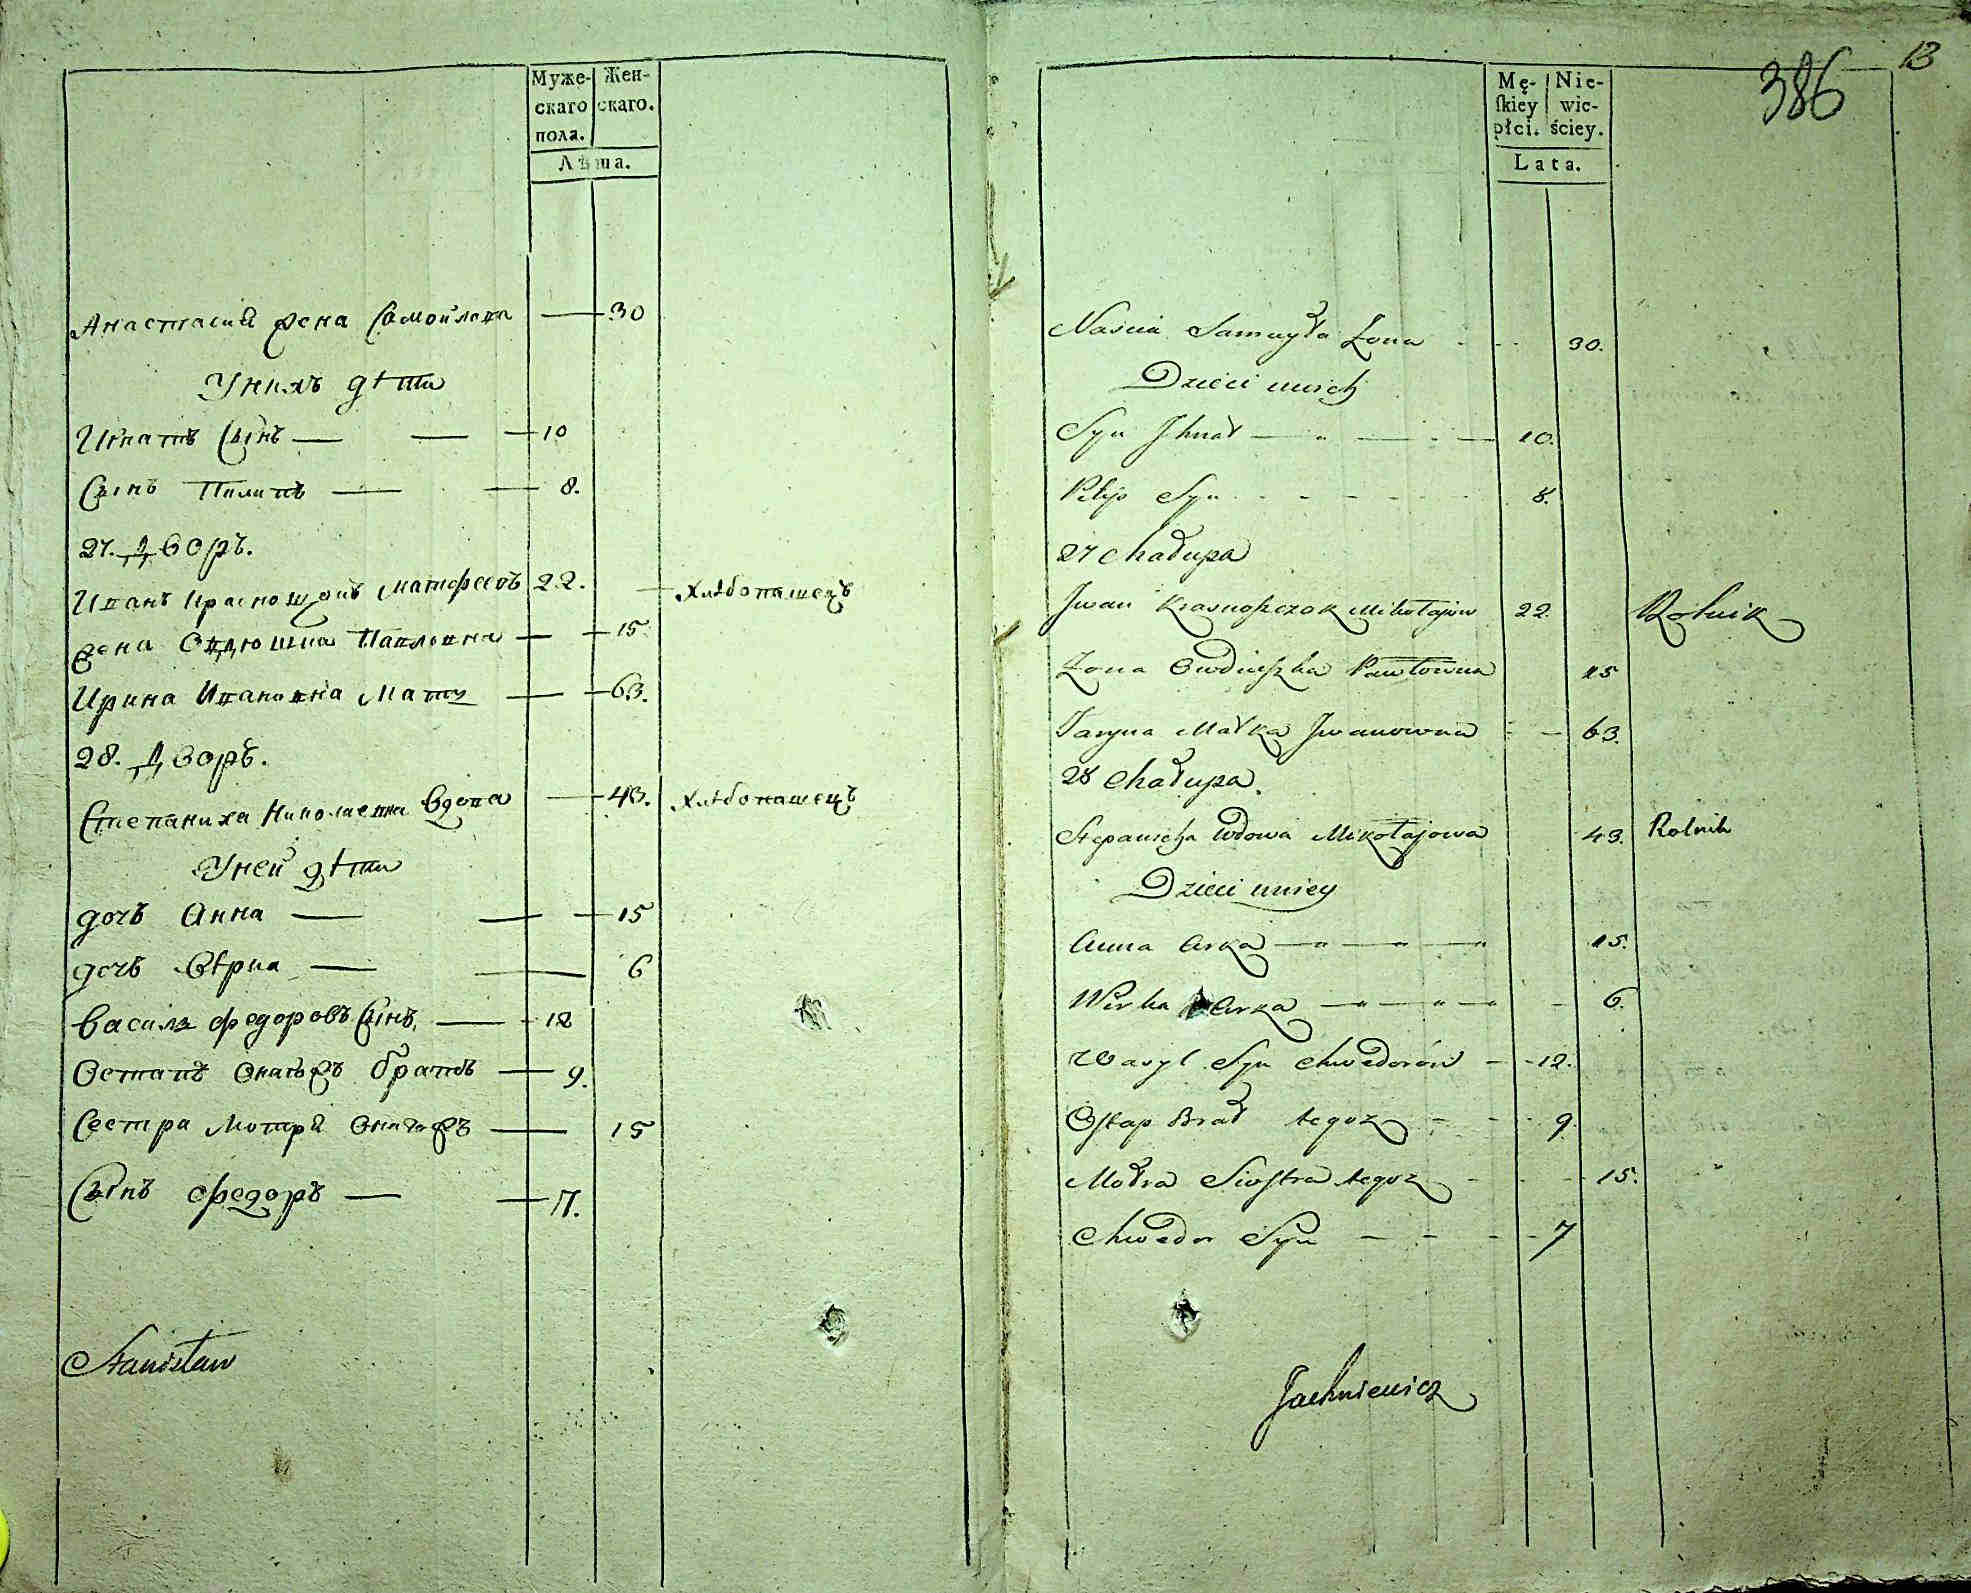 Муже-
скаго
пола.
Жен-
скаго.
Лѣта.
Анастасий жена Самойлова — 30
Унихъ дѣти
Игнатъ Сынъ — — — 10
Сынъ Пилипъ — — 8.
27. Дворъ.
Иванъ Красношонъ Матфеевъ 22. — Хлѣбопашецъ
жена Овдюшка Павловна — — 15.
Ирина Ивановна Мать — — 63.
28. Дворъ.
Степаниха Николаевна Вдова — 43. Хлѣбопашецъ
Уней дѣти
дочъ Анна — — — 15
дочъ Вѣрка — — 6
Василь Федоровъ Сынъ — 12
Остапъ Онагожъ братъ — 9.
Сестра Мотря Онагожъ — 15
Сынъ Федоръ — — 7.
Stanisław
386
13
Mę-
ſkiey
płci.
Nie-
wie-
ściey.
Lata.
Naścia Samuyła Żona 30.
Dzieci unich
Syn Jhnat 10.
Pilip Syn 8.
27 Chałupa
Jwan Krasnoszczok Mikołajow 22. Rolnik
Żona Owdiuszka Pawłowna 15
Jaryna Matka Jwanowna 63.
28 Chałupa.
Stepanicha Wdowa Mikołajowa 43. Rolnik
Dzieci uniey
Anna Curka 15.
Wirka Curka 6.
Wasyl Syn Chwedorów 12.
Ostap Brat tegoz 9.
Motra Siostra tegoz 15.
Chwedor Syn 7
Jachniewicz